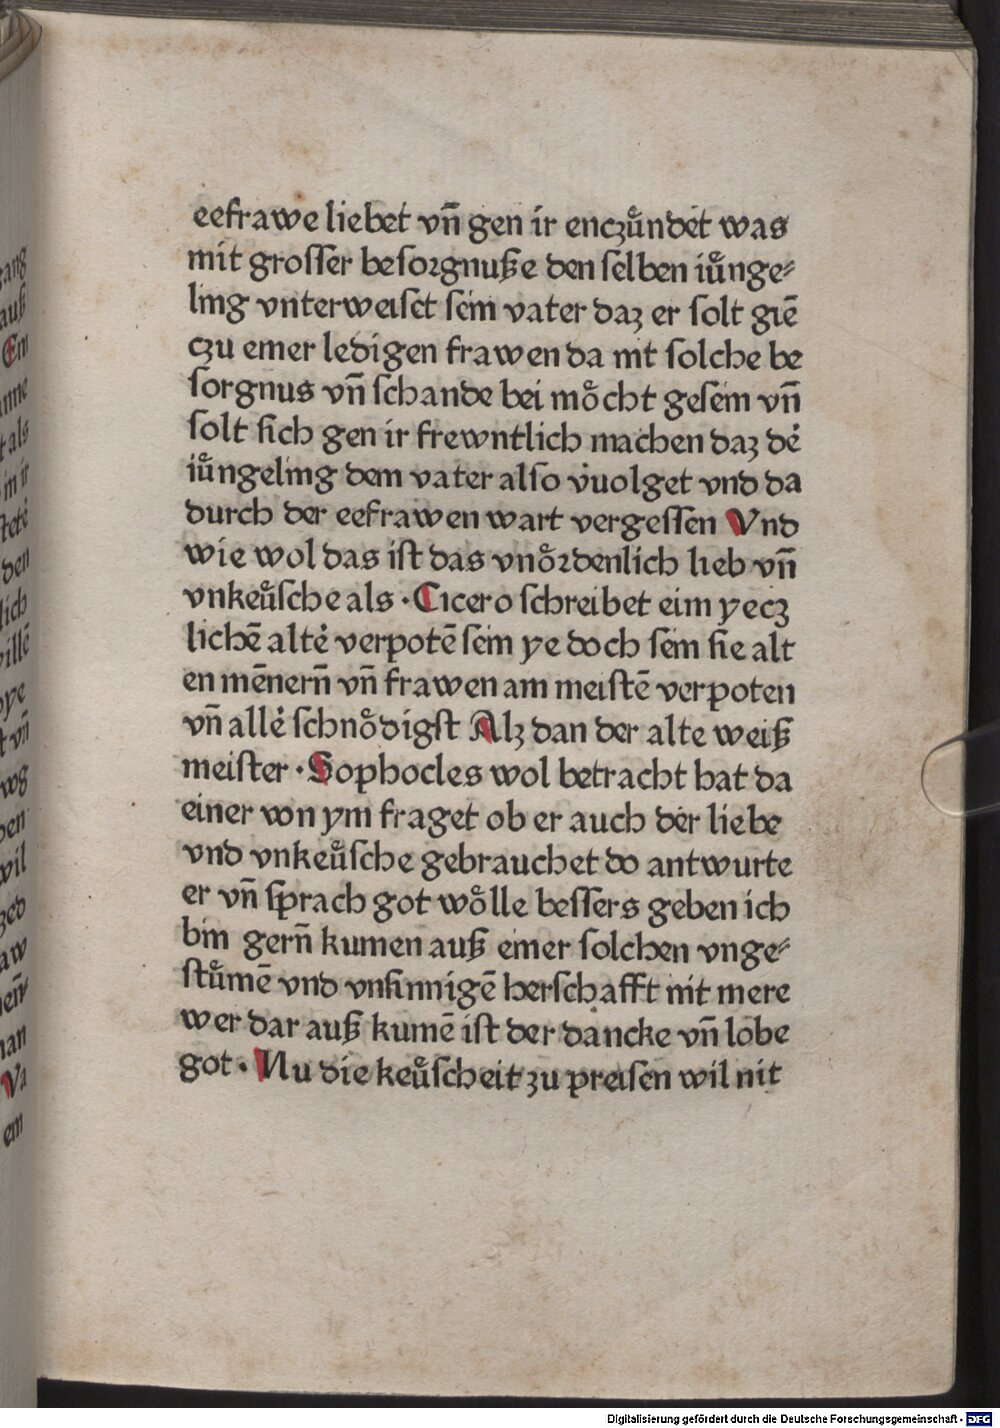 eefrawe liebet vñ gen ir enczuͤndet was
mit grosser besorgnuße den selben iuͤnge⸗
ling vnterweiset sein vater daz er solt giē
czu einer ledigen frawen da nit solche be
sorgnus vñ schande bei moͤcht gesein vñ
solt sich gen ir frewntlich machen daz dẻ
iuͤngeling dem vater also vuolget vnd da
durch der eefrawen wart vergessen Vnd
wie wol das ist das vnoͤrdenlich lieb vñ
vnkeuͤsche als · Cicero schreibet eim yecz
lichē altẻ verpotē sein ye doch sein sie alt
en mēnerñ vñ frawen am meistē verpoten
vñ allẻ schnoͤdigst Alz dan der alte weiß
meister · Sophocles wol betracht hat da
einer von ym fraget ob er auch der liebe
vnd vnkeuͤsche gebrauchet do antwurte
er vñ sprach got woͤlle bessers geben ich
bin gerñ kumen auß einer solchen vnge⸗
stuͤmē vnd vnsinnigē herschafft nit mere
wer dar auß kumē ist der dancke vñ lobe
got · Nu die keuͤscheit zu preisen wil nit
Digitalisierung gefördert durch die Deutsche Forschungsgemeinschaft - DFG